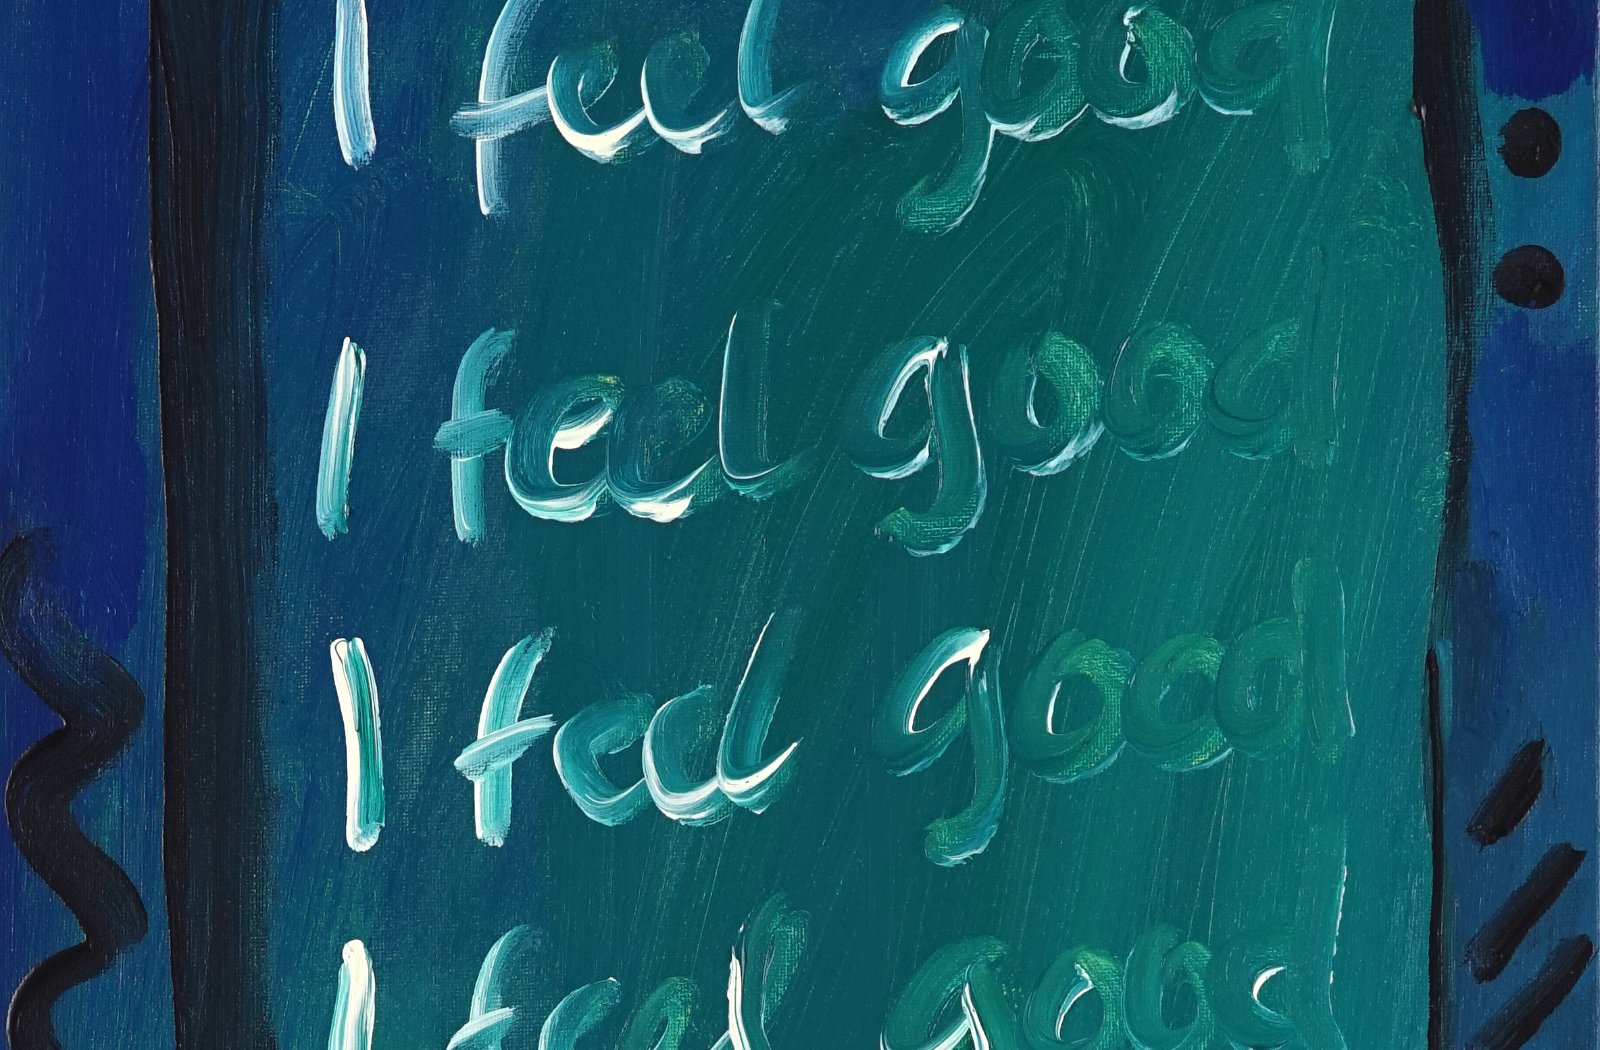 I feel good
I feel good
I feel good
I feel good